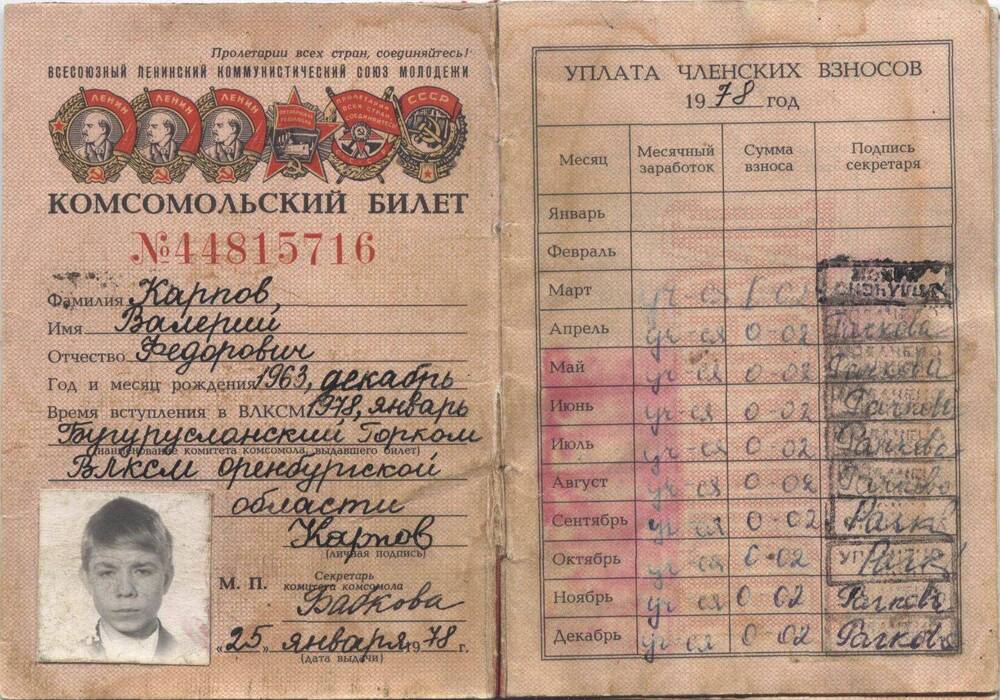 Пролетарии всех стран, соединяйтесь!
ВСЕСОЮЗНЫЙ ЛЕНИНСКИЙ КОММУНИСТИЧЕСКИЙ СОЮЗ МОЛОДЕЖИ
ЛЕНИН ЛЕНИН ЛЕНИН ПРОЛЕТАРИИ ВСЕХ СТРАН, СОЕДИНЯЙТЕСЬ СССР
КОМСОМОЛЬСКИЙ БИЛЕТ
№44815716
Фамилия Карпов
Имя Валерий
Отчество Федорович
Год и месяц рождения 1963, декабрь
Время вступления в ВЛКСМ 1978, январь
Бугурусланский Горком
(наименование комитета комсомола, выдавшего билет)
ВЛКСМ оренбургской
области
Карпов
(личная подпись)
М. П. Секретарь комитета комсомола
Бабкова
«25» января 1978 г.
(дата выдачи)
УПЛАТА ЧЛЕНСКИХ ВЗНОСОВ
1978 год
Месяц Месячный заработок Сумма взноса Подпись секретаря
Январь
Февраль
Март уч-ся 0-02
Апрель уч-ся 0-02 Рачкова
Май уч-ся 0-02 Рачкова
Июнь уч-ся 0-02 Рачкова
Июль уч-ся 0-02 Рачкова
Август уч-ся 0-02 Рачкова
Сентябрь уч-ся 0-02 Рачк
Октябрь уч-ся 0-02 Рачк
Ноябрь уч-ся 0-02 Рачкова
Декабрь уч-ся 0-02 Рачкова